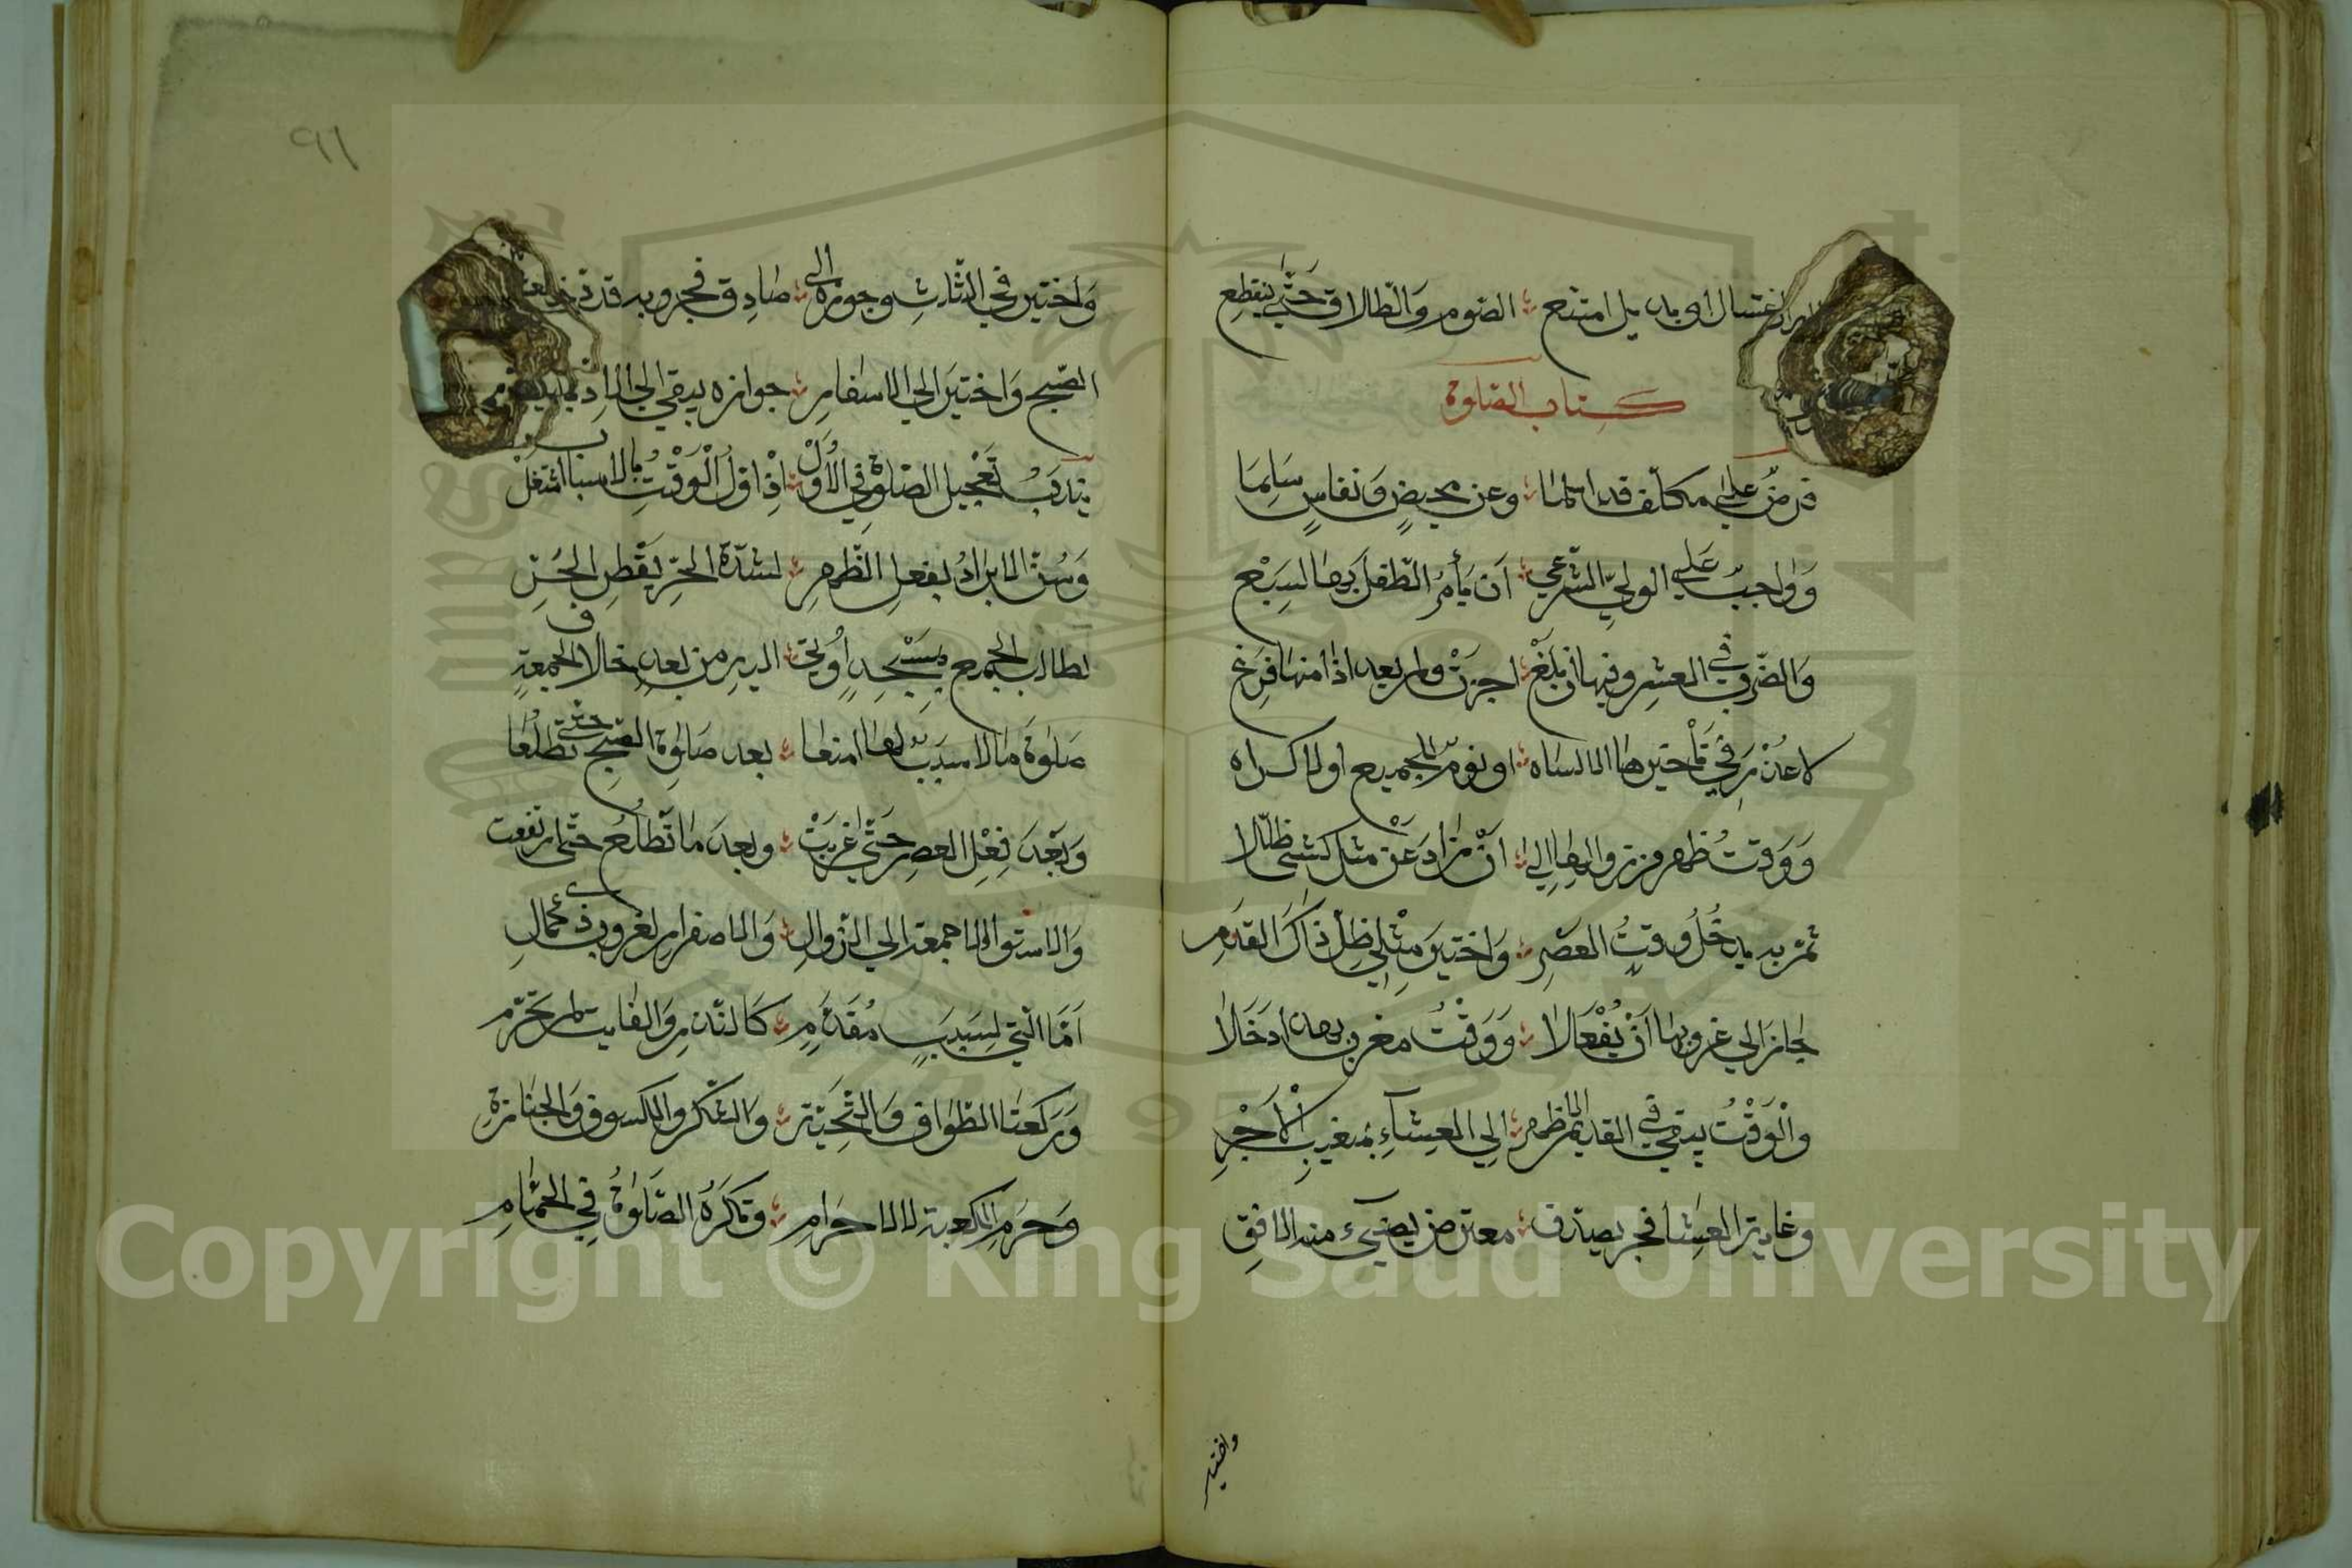 اغتسال او بديل امتنع ؞ الصوم والطلاق حتى ينقطع
كتاب الصلوة
فرض على مكلف قد اسلما ؞ وعن محيض ونفاس سلما
وواجب على الولي الشرعي ؞ ان يأمر الطفل بها لسبع
والضرب في العشر وفيها ان بلغ ؞ اجزت ولم يعد اذا منها فرغ
لا عذر في تاخيرها الا لساه ؞ او نوم الجميع او الاكراه
ووقت ظهر من زوالها الى ؞ ان زاد عن مثل كشئ ظللا
ثم به يدخل وقت العصر ؞ واختير مثلي ظل ذاك القدر
جاز الى غروبها ان يفعلا ؞ ووقت مغرب بهذا دخلا
والوقت يبقى في القديم الاظهر ؞ الى العشاء بمغيب الاحمر
وغاية العشا فجر يصدق ؞ معترض يضيء منه الافق
واختير
٩١
واختير في الثلث وجوزه الى ؞ صادق فجر وبه قد دخلت
الصبح واختير الى الاسفار ؞ جوازه يبقى الى
يندب تعجيل الصلوة في الاول ؞ اذ اول الوقت بالاسباب اشتغل
وسن الابراد بفعل الظهر ؞ لشدة الحر بقطر الحر
لطالب الجميع بمسجد اوتي ؞ اليه من بعد خلاف الجمعة
صلوة ما لا سبب لها امنعا ؞ بعد صلوة الصبح حتى تطلعا
وبعد فعل العصر حتى غربت ؞ وبعد ما تطلع حتى ارتفعت
والاستوا لا جمعة الى الزوال ؞ والاصفرار لغروب ذي كمال
اما التي لسبب مقدم ؞ كالنذر والفايت لم تحرم
وركعتا الطواف والتحية ؞ والشكر والكسوف والجنازة
وحرم الكعبة لا الاحرام ؞ وتكره الصلوة في الحمام
Copyright © King Saud University